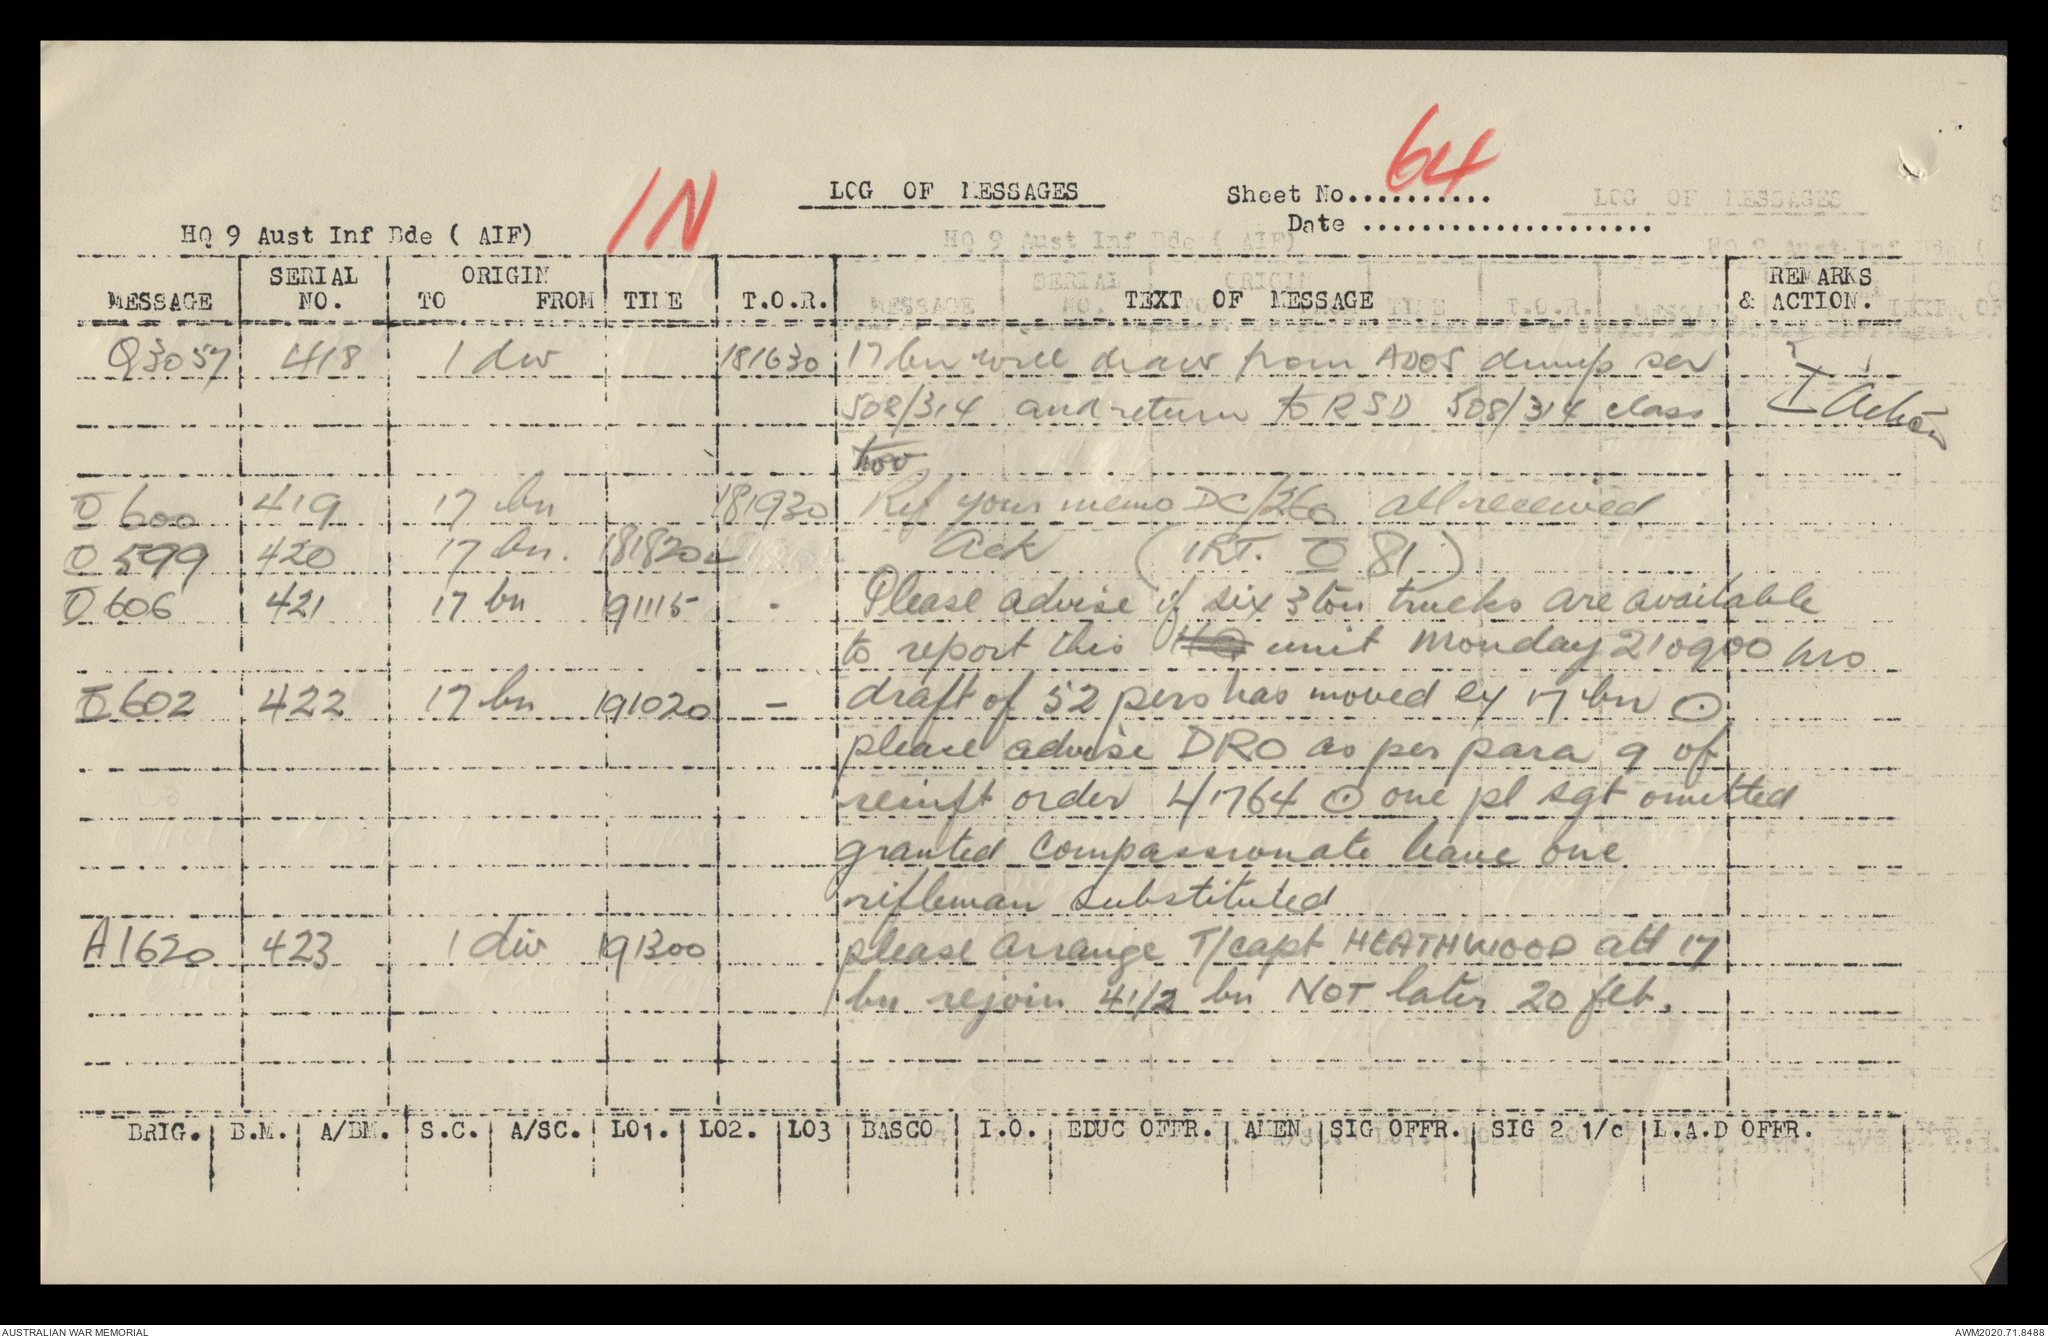 IN
LOG OF MESSAGES
Sheet No.......... 64
Date .....................
HQ 9 Aust Inf Bde ( AIF)
MESSAGE SERIAL NO. ORIGIN TO FROM TIME T.O.R. TEXT OF MESSAGE REMARKS & ACTION.
Q3057 418 1 div 181630 17 bn will draw from ADOS dump ser
508/314 and return to RSD 508/314 class I Action
two
O 600 419 17 bn 181930 Ref your memo DC/260 all received
O 599 420 17 bn. 181820 Ack (IRT. O 81)
O 606 421 17 bn 191115 - Please advise if six 3 ton trucks are available
to report this HQ unit Monday 210900 hrs
O 602 422 17 bn 191020 - draft of 52 pers has moved by 17 bn ⊙
please advise DRO as per para 9 of
reinft order 4/1764 ⊙ one pl sgt omitted
granted compassionate leave one
rifleman substituted
A1620 423 1 div 191300 please arrange T/capt HEATHWOOD att 17
bn rejoin 41/2 bn NOT later 20 feb.
BRIG. B.M. A/BM. S.C. A/SC. LO1. LO2. LO3 BASCO I.O. EDUC OFFR. AMEN SIG OFFR. SIG 2 1/c L.A.D OFFR.
AUSTRALIAN WAR MEMORIAL AWM2020.71.8488